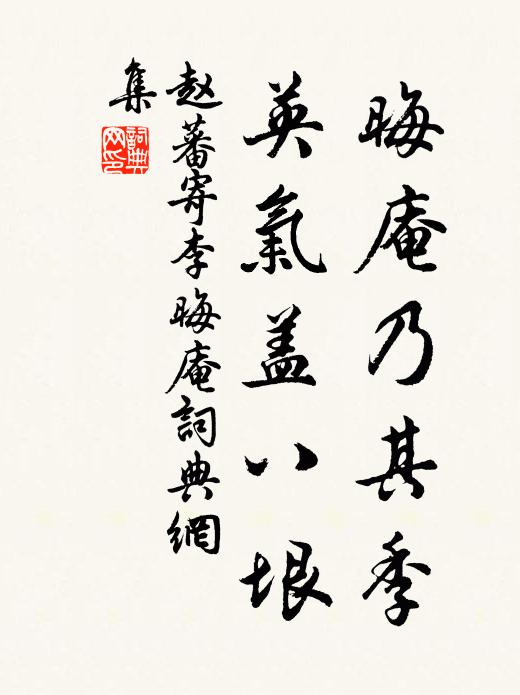 晦庵乃其季
英氣盖八垠
赵蕃寄李晦庵詞典網
集
詞典網印